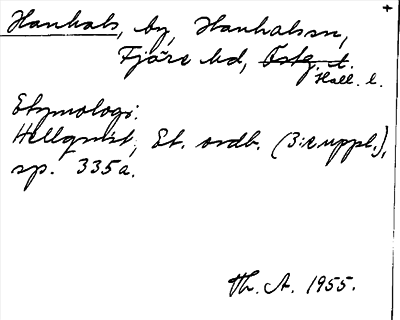 Hanhals, by, Hanhals sn,
Fjäre hd, Östg. l.
Hall. l.
Etymologi:
Hellquist, Et. ordb. (3:e uppl.),
sp. 335a.
Th. A. 1955.